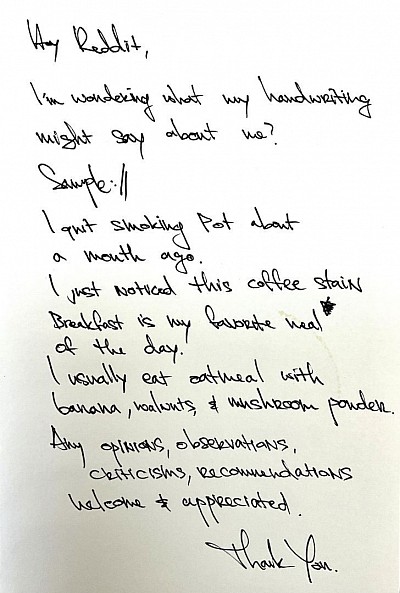 Hey Reddit,
I'm wondering what my handwriting
might say about me?
Sample://
I quit smoking Pot about
a month ago.
I just noticed this coffee stain
Breakfast is my favorite meal
of the day.
I usually eat oatmeal with
banana, walnuts, & mushroom powder.
Any opinions, observations,
criticisms, recommendations
welcome & appreciated.
Thank You.